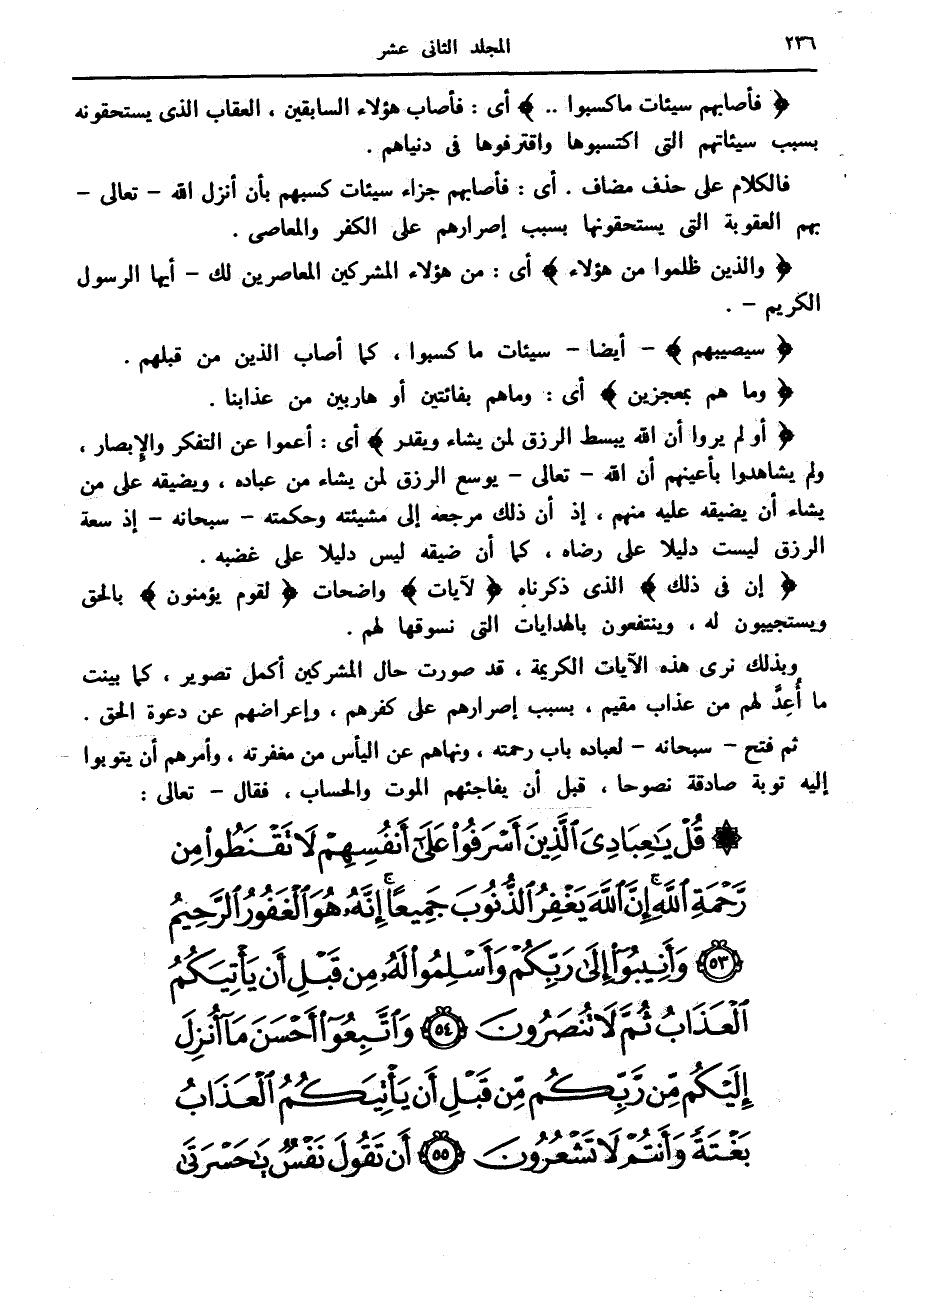 ٢٣٦
المجلد الثانى عشر
﴿ فأصابهم سيئات ماكسبوا .. ﴾ أى : فأصاب هؤلاء السابقين ، العقاب الذى يستحقونه
بسبب سيئاتهم التى اكتسبوها واقترفوها فى دنياهم .
فالكلام على حذف مضاف . أى : فأصابهم جزاء سيئات كسبهم بأن أنزل الله – تعالى –
بهم العقوبة التى يستحقونها بسبب إصرارهم على الكفر والمعاصى .
﴿ والذين ظلموا من هؤلاء ﴾ أى : من هؤلاء المشركين المعاصرين لك – أيها الرسول
الكريم – .
﴿ سيصيبهم ﴾ – أيضا – سيئات ما كسبوا ، كما أصاب الذين من قبلهم .
﴿ وما هم بمعجزين ﴾ أى : وماهم بفائتين أو هاربين من عذابنا .
﴿ أو لم يروا أن الله يبسط الرزق لمن يشاء ويقدر ﴾ أى : أعموا عن التفكر والإبصار ،
ولم يشاهدوا بأعينهم أن الله – تعالى – يوسع الرزق لمن يشاء من عباده ، ويضيقه على من
يشاء أن يضيقه عليه منهم ، إذ أن ذلك مرجعه إلى مشيئته وحكمته – سبحانه – إذ سعة
الرزق ليست دليلا على رضاه ، كما أن ضيقه ليس دليلا على غضبه .
﴿ إن فى ذلك ﴾ الذى ذكرناه ﴿ لآيات ﴾ واضحات ﴿ لقوم يؤمنون ﴾ بالحق
ويستجيبون له ، وينتفعون بالهدايات التى نسوقها لهم .
وبذلك نرى هذه الآيات الكريمة ، قد صورت حال المشركين أكمل تصوير ، كما بينت
ما أُعِدَّ لهم من عذاب مقيم ، بسبب إصرارهم على كفرهم ، وإعراضهم عن دعوة الحق .
ثم فتح – سبحانه – لعباده باب رحمته ، ونهاهم عن اليأس من مغفرته ، وأمرهم أن يتوبوا
إليه توبة صادقة نصوحا ، قبل أن يفاجئهم الموت والحساب ، فقال – تعالى :
۞ قُلْ يَٰعِبَادِىَ ٱلَّذِينَ أَسْرَفُوا۟ عَلَىٰٓ أَنفُسِهِمْ لَا تَقْنَطُوا۟ مِن
رَّحْمَةِ ٱللَّهِ ۚ إِنَّ ٱللَّهَ يَغْفِرُ ٱلذُّنُوبَ جَمِيعًا ۚ إِنَّهُۥ هُوَ ٱلْغَفُورُ ٱلرَّحِيمُ
٥٣ وَأَنِيبُوٓا۟ إِلَىٰ رَبِّكُمْ وَأَسْلِمُوا۟ لَهُۥ مِن قَبْلِ أَن يَأْتِيَكُمُ
ٱلْعَذَابُ ثُمَّ لَا تُنصَرُونَ ٥٤ وَٱتَّبِعُوٓا۟ أَحْسَنَ مَآ أُنزِلَ
إِلَيْكُم مِّن رَّبِّكُم مِّن قَبْلِ أَن يَأْتِيَكُمُ ٱلْعَذَابُ
بَغْتَةً وَأَنتُمْ لَا تَشْعُرُونَ ٥٥ أَن تَقُولَ نَفْسٌ يَٰحَسْرَتَىٰ